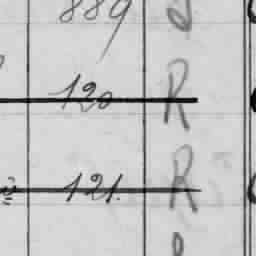 889
120 R
121. R